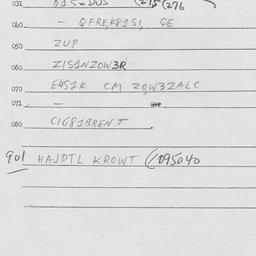 031 D1S=DUS (275 (276
040 - QFRE,K81S1, QE
050 ZUP
060 Z1S1NZOW3R
070 E4S1K CM ZO,W3ZALC
071 -
080 C1G81BRENT.
901 HAJDTL KROWT (1095040